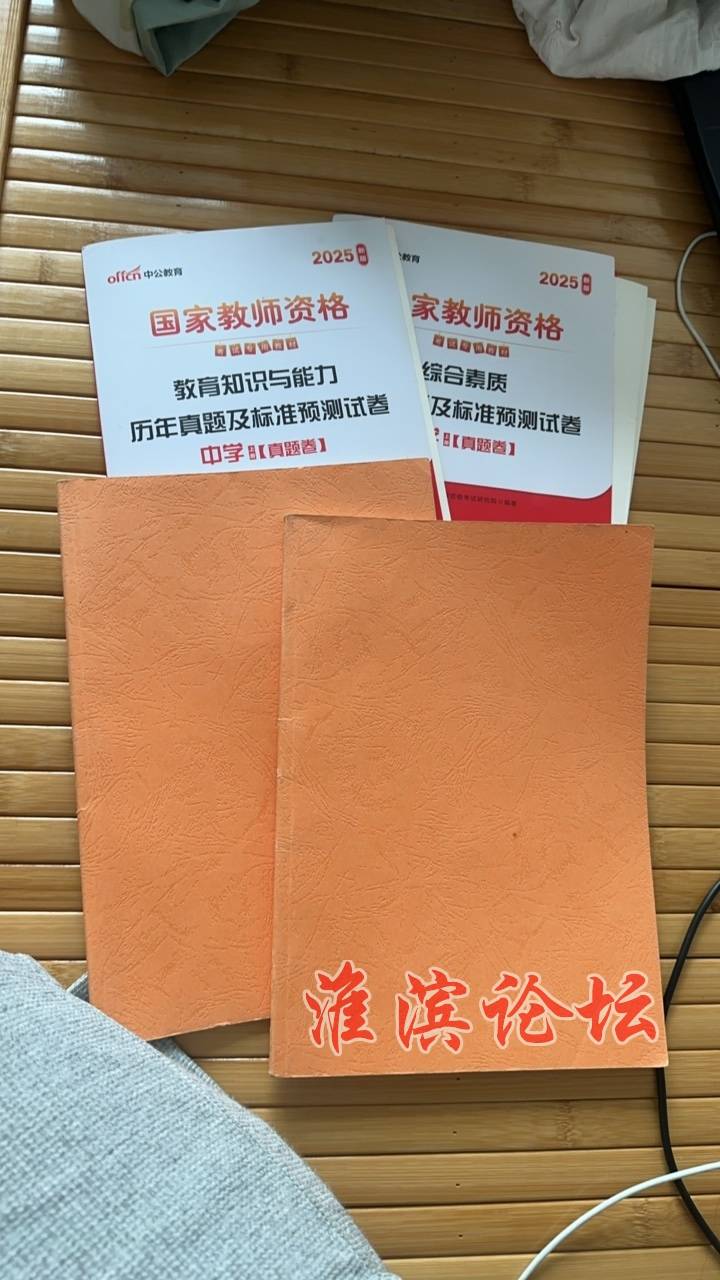 offcn 中公教育
2025 新版
国家教师资格
考试专用教材
教育知识与能力
历年真题及标准预测试卷
中学 【真题卷】
2025 新版
家教师资格
考试专用教材
综合素质
及标准预测试卷
【真题卷】
淮滨论坛